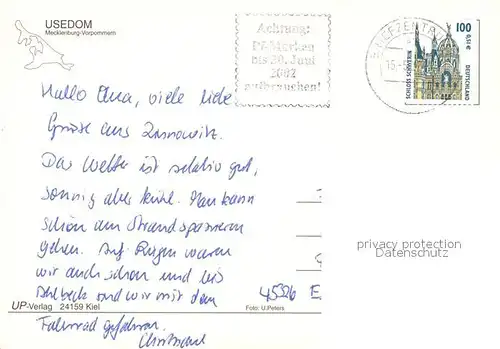 USEDOM
Mecklenburg-Vorpommern
Achtung:
Pf-Marken
bis 30. Juni
2002
aufbrauchen!
BRIEFZENTRUM
100
0,51€
SCHLOSS SCHWERIN
DEUTSCHLAND
Hallo Oma, viele liebe
Grüße aus Zinnowitz.
Das Wetter ist relativ gut,
sonnig aber kühl. Man kann
schön am Strand spazieren
gehen. Auf Rügen waren
wir auch schon und bis
Ahlbeck sind wir mit dem
Fahrrad gefahren.
45326 E
privacy protection
Datenschutz
UP-Verlag 24159 Kiel
Foto: U.Peters